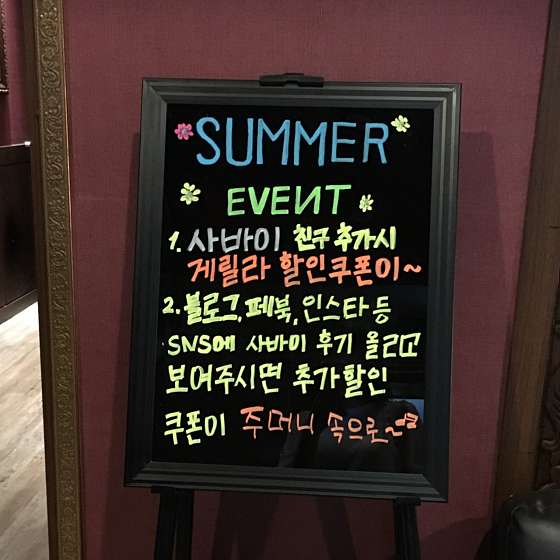 SUMMER
EVENT
1. 사바이 친구 추가시
게릴라 할인쿠폰이~
2. 블로그, 페북, 인스타 등
SNS에 사바이 후기 올리고
보여주시면 추가할인
쿠폰이 주머니 속으로~